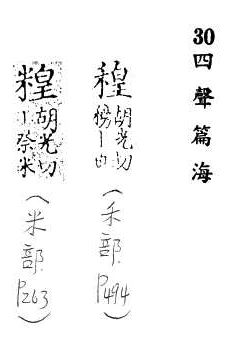 30四聲篇海
䅣胡光切
丨也
(禾部P494)
䊗胡光切
丨祭米
(米部P263)